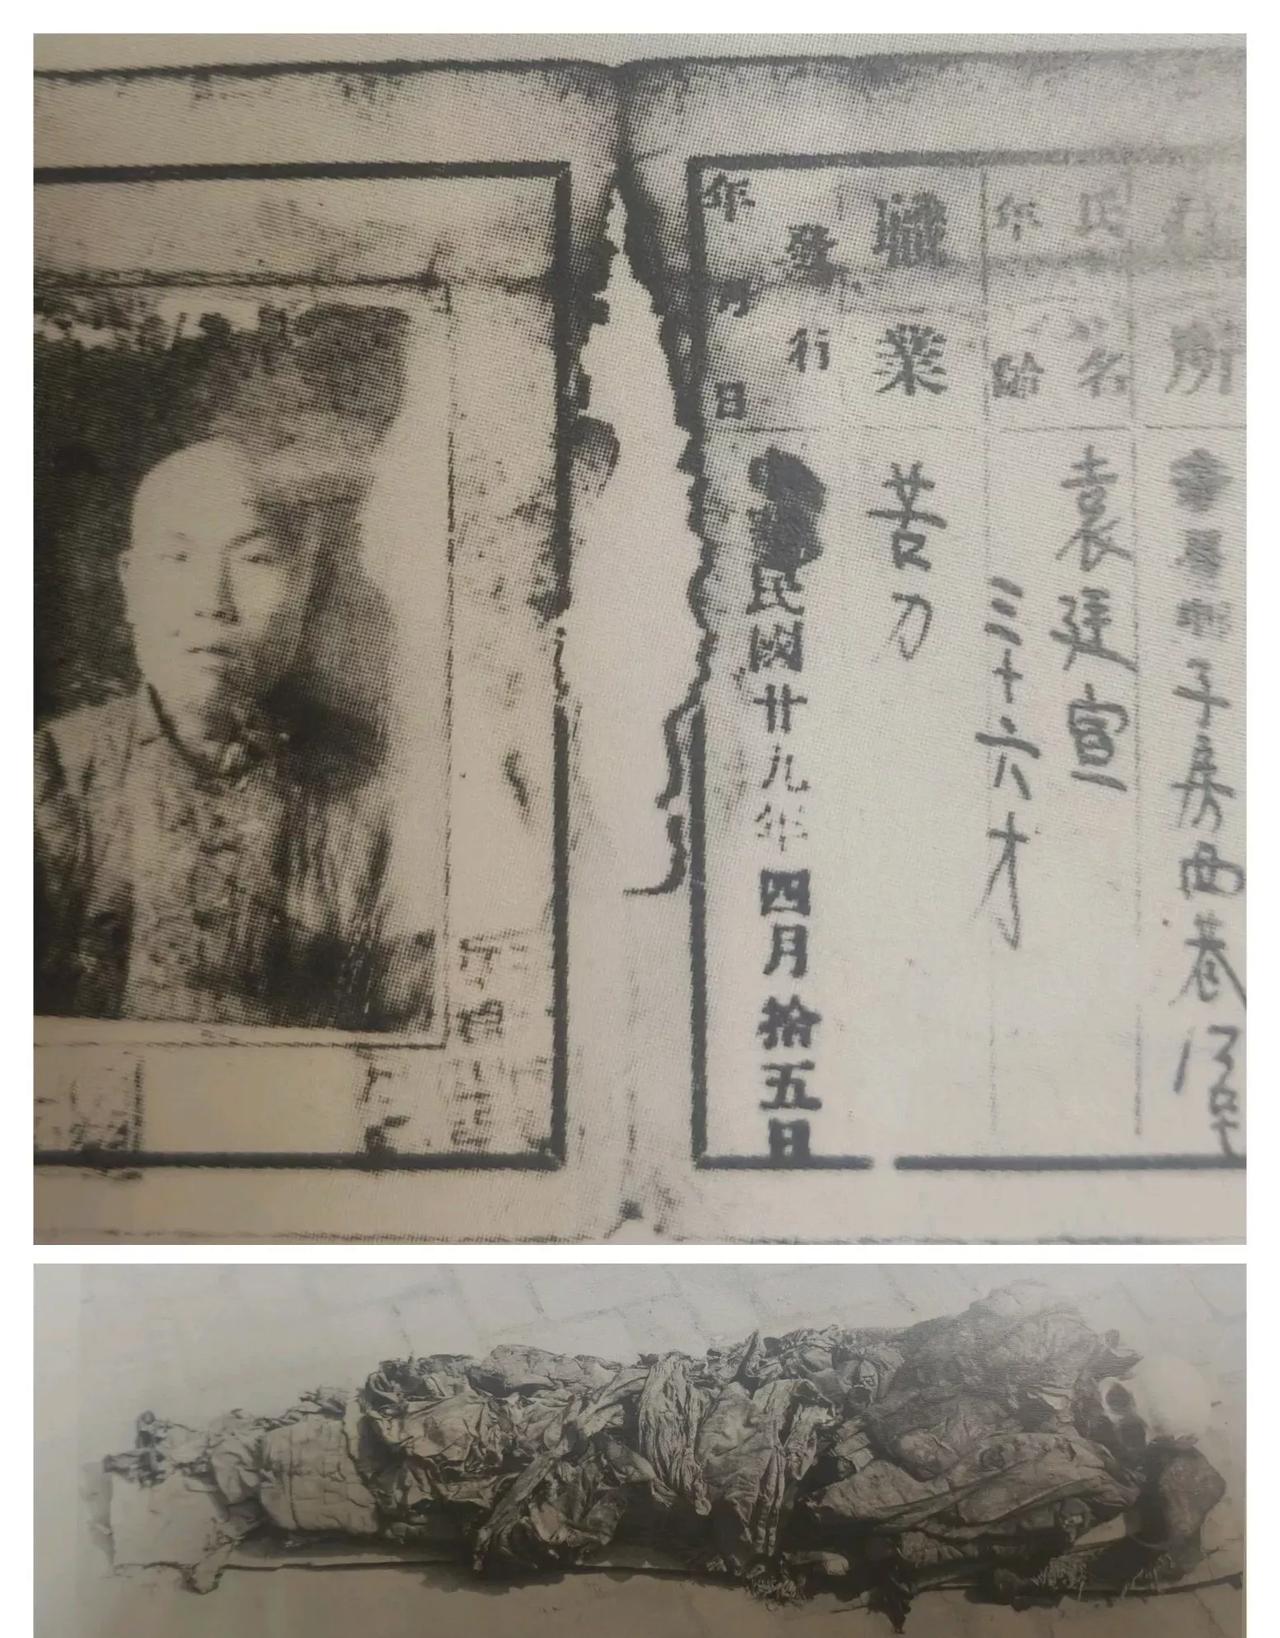 所 子房西巷13号
氏名 袁廷宣
年龄 三十六才
職業 苦力
發行年月日 民國廿九年四月拾五日